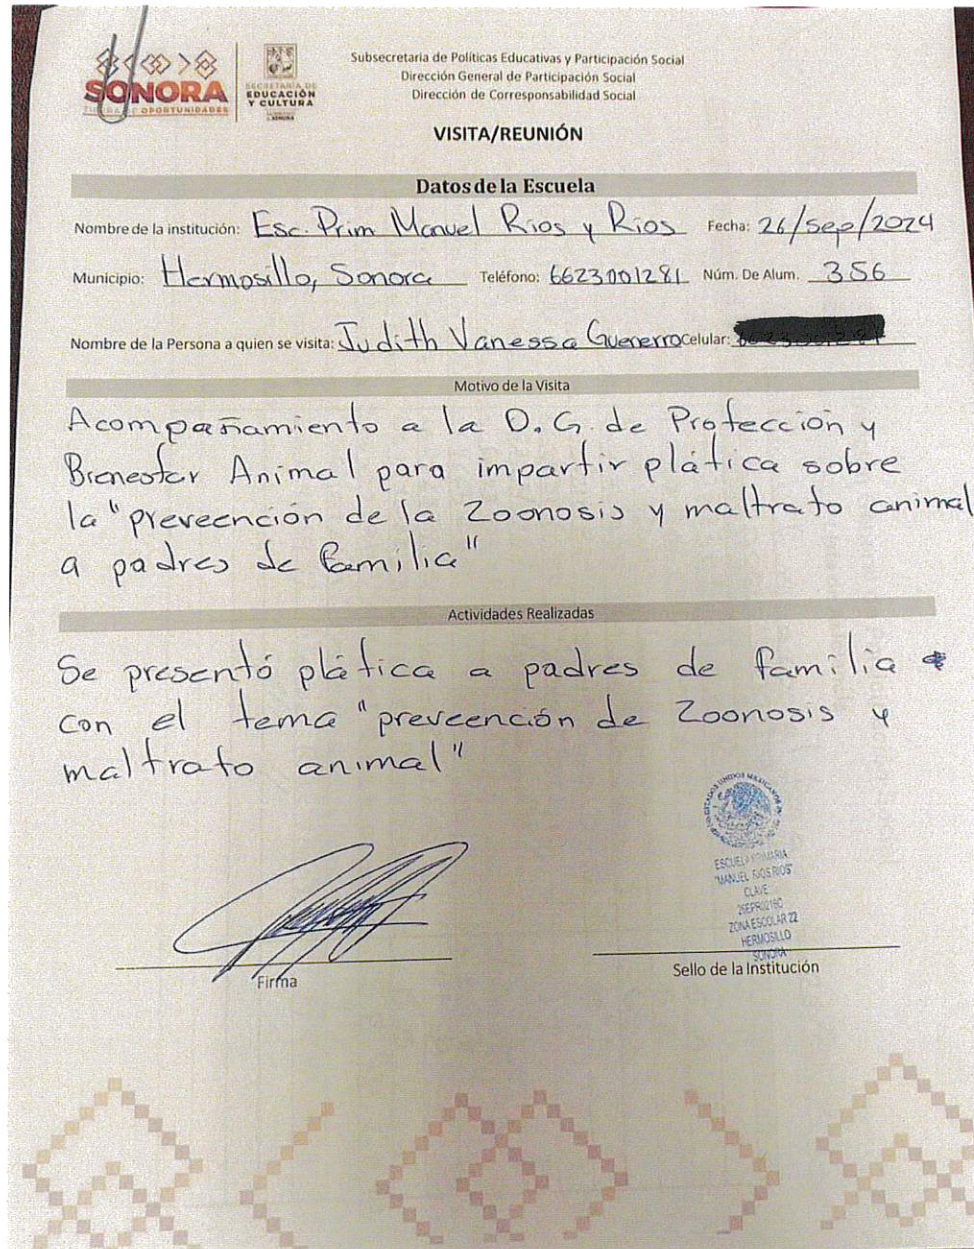 SONORA
TIERRA DE OPORTUNIDADES
SECRETARÍA DE
EDUCACIÓN
Y CULTURA
Subsecretaria de Políticas Educativas y Participación Social
Dirección General de Participación Social
Dirección de Corresponsabilidad Social
VISITA/REUNIÓN
Datos de la Escuela
Nombre de la institución: Esc. Prim Manuel Rios y Rios Fecha: 26/Sep/2024
Municipio: Hermosillo, Sonora Teléfono: 6623001281 Núm. De Alum. 356
Nombre de la Persona a quien se visita: Judith Vanessa Guererro Celular:
Motivo de la Visita
Acompañamiento a la D.G. de Protección y
Bienestar Animal para impartir plática sobre
la "preveención de la Zoonosis y maltrato animal
a padres de familia"
Actividades Realizadas
Se presentó plática a padres de familia
con el tema "preveención de Zoonosis y
maltrato animal"
ESTADOS UNIDOS MEXICANOS
ESCUELA PRIMARIA
"MANUEL RIOS RIOS"
CLAVE
ZONA ESCOLAR 22
HERMOSILLO
SONORA
Firma
Sello de la Institución